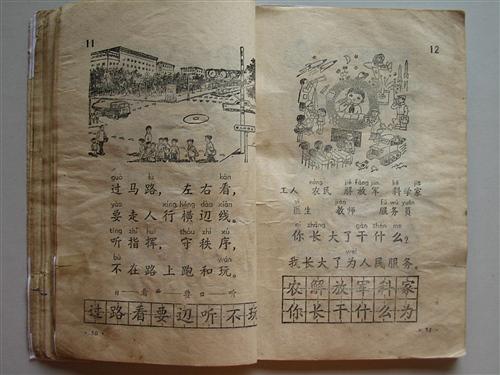 11
guò lù kàn
过马路，左右看，
yào xíng héng dào xiàn
要走人行横道线。
tīng zhǐ huī shǒu zhì xù
听指挥，守秩序，
bù wán
不在路上跑和玩。
看 要 听
过路看要边听不玩
12
nóng jiě fàng jūn kē
工人 农民 解放军 科学家
yī shī fú wù yuán
医生 教师 服务员
nǐ zhǎng gàn shén me
你长大了干什么？
wèi
我长大了为人民服务。
农解放军科家
你长干什么为